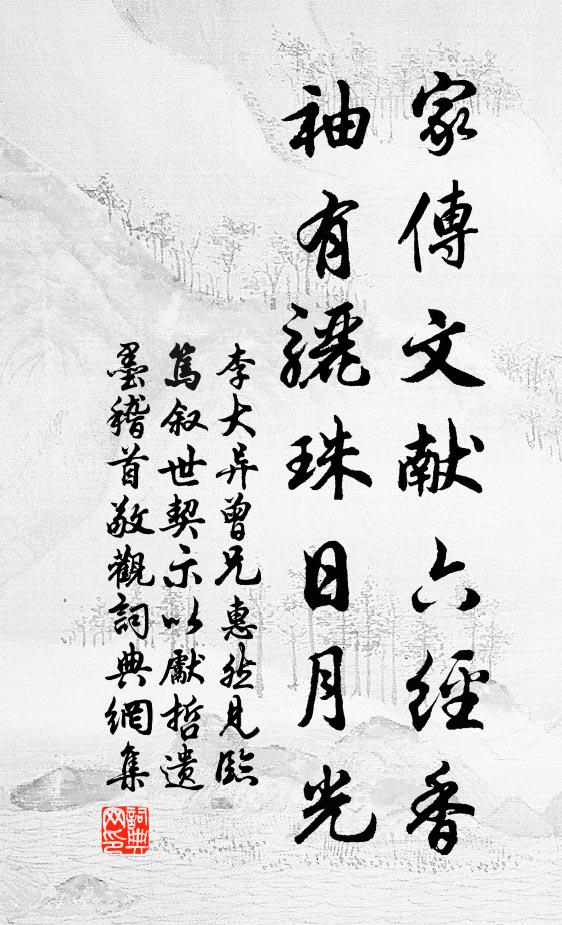 家傳文献六經香
袖有驪珠日月光
李大异曾兄惠然見臨
篤叙世契示以獻哲遗
墨稽首敬觀詞典網集
詞典
网印